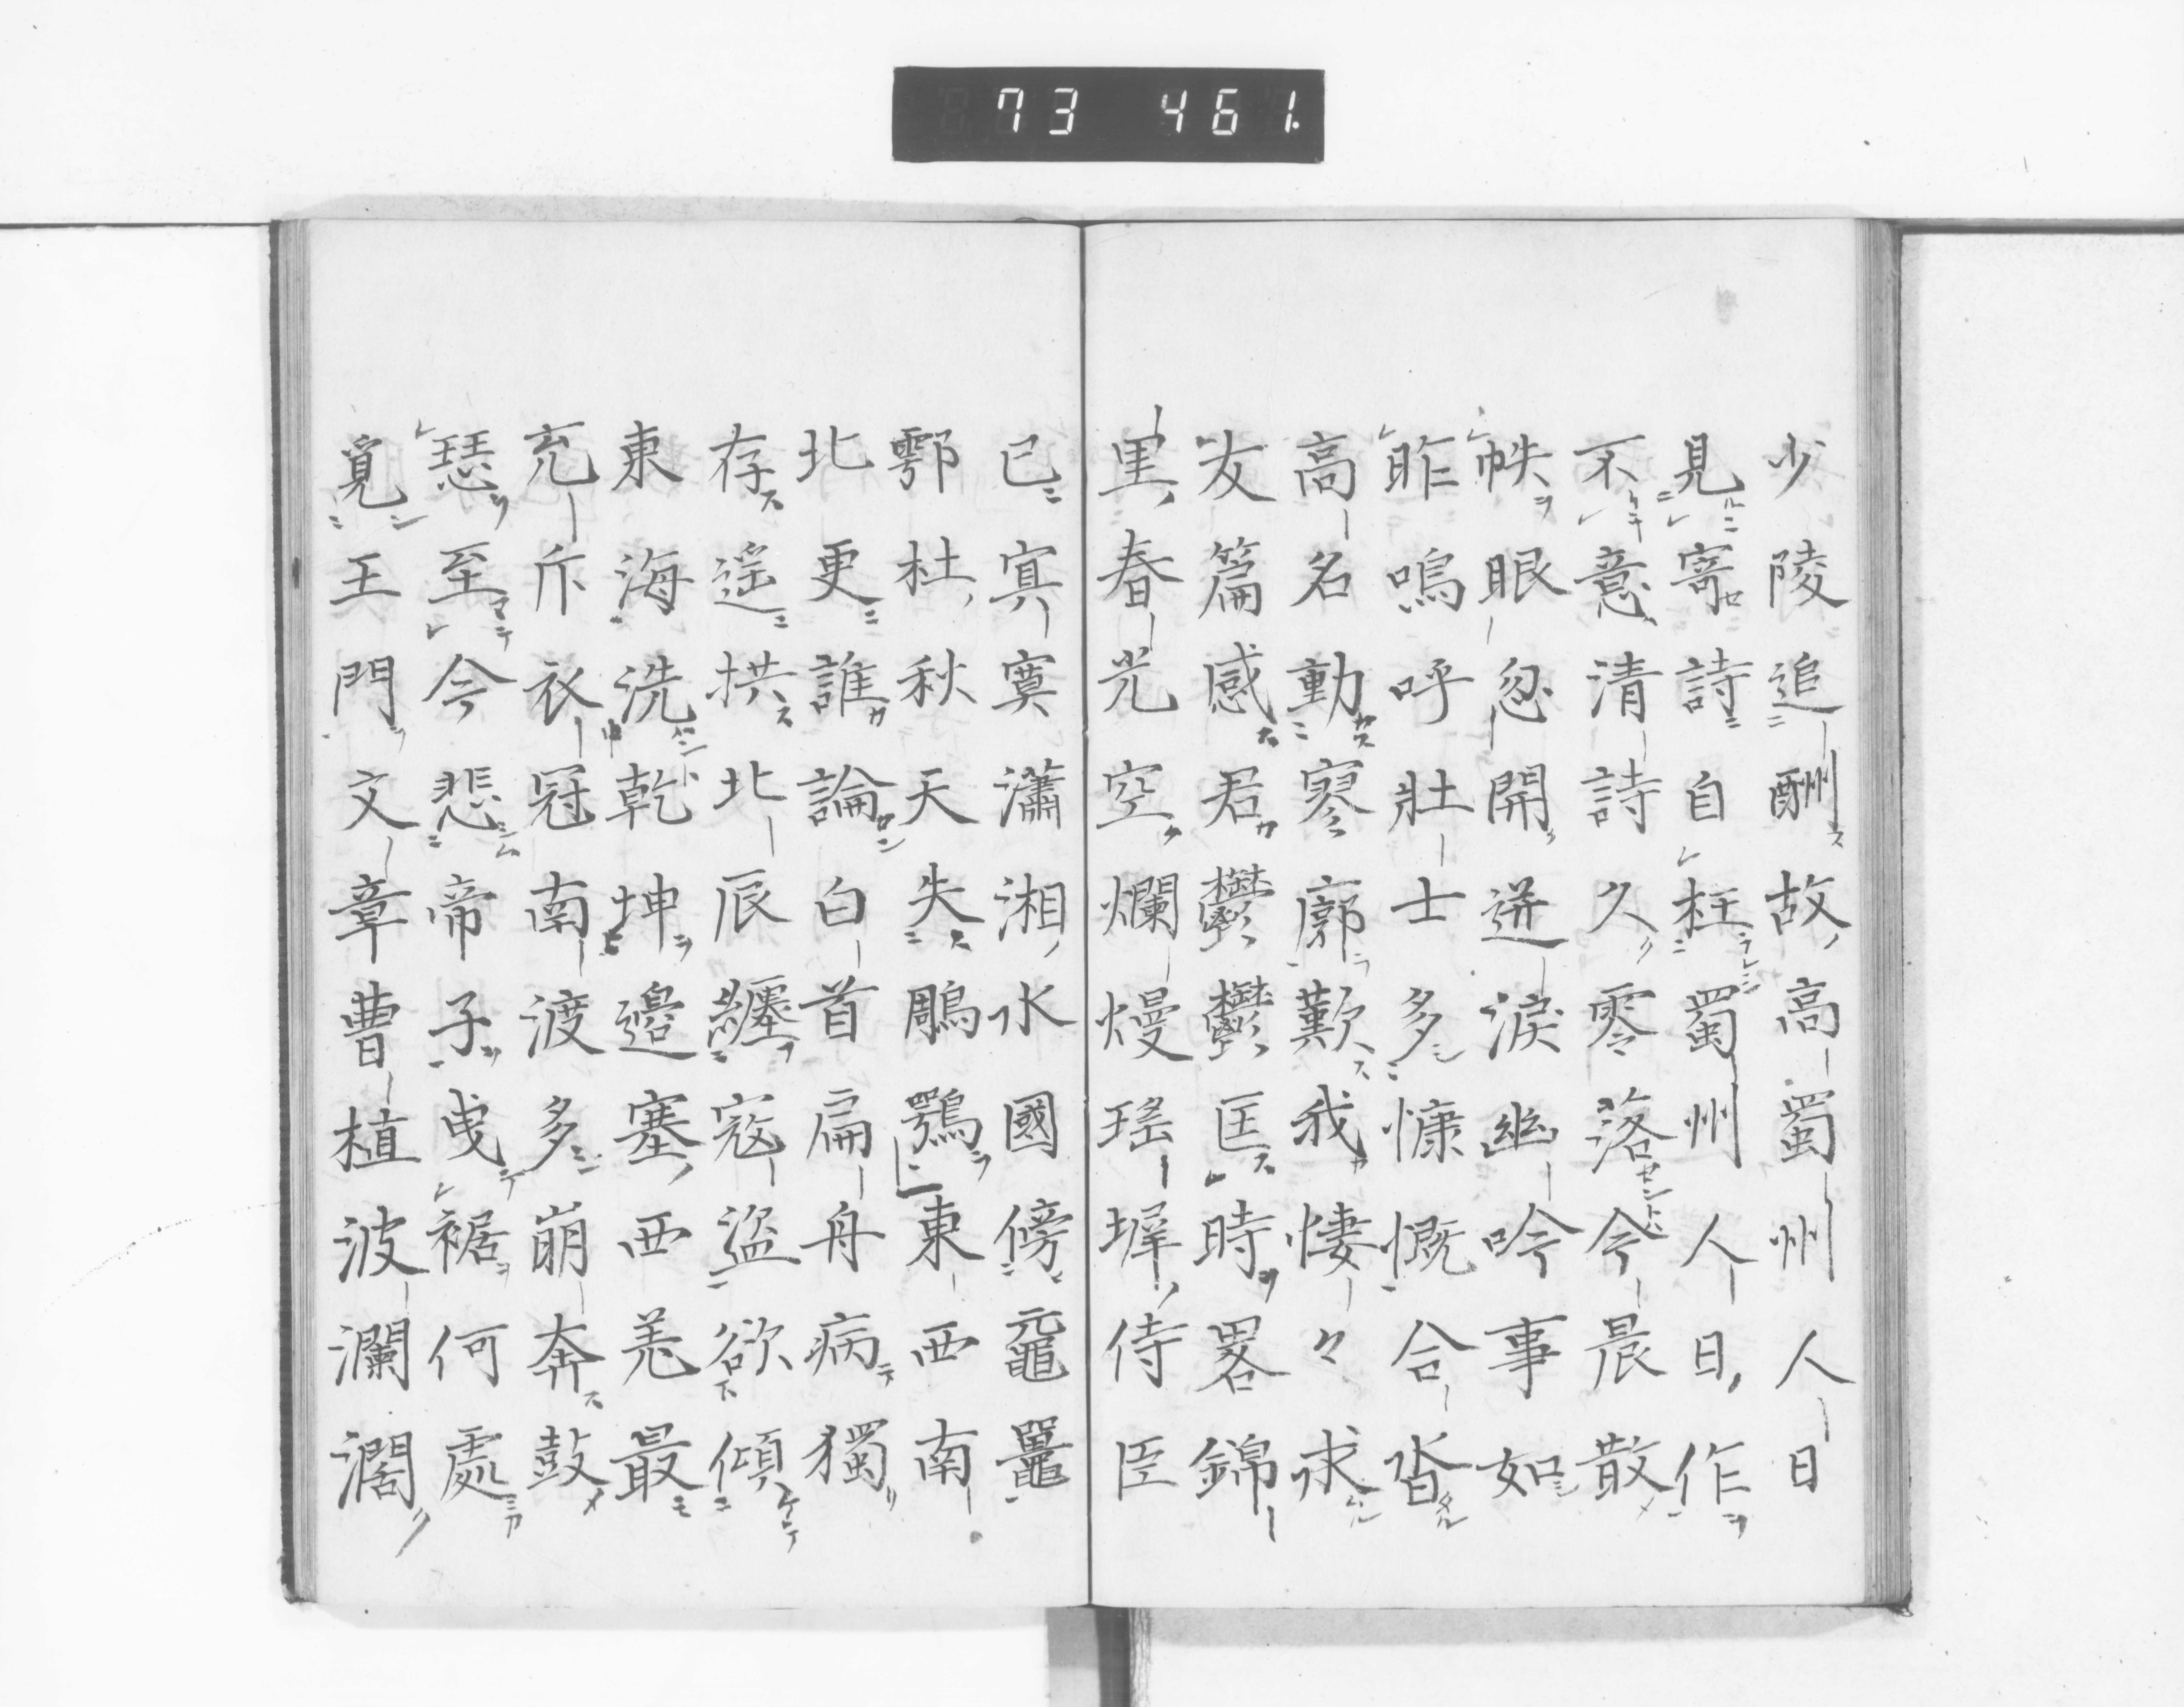 73 461.
少陵追酬故高蜀州人日
見寄詩自枉蜀州人日作
不意清詩久零落今晨散
帙眼忽開迸淚幽吟事如
昨嗚呼壯士多慷慨合沓
高名動寥廓歎我悽々求
友篇感君鬱鬱匡時畧錦
里春光空爛熳瑤墀侍臣
已冥寞瀟湘水國傍黿鼉
鄠杜秋天失鵰鶚東西南
北更誰論白首扁舟病獨
存遥拱北辰纏寇盜欲傾
東海洗乾坤邊塞西羌最
充斥衣冠南渡多崩奔鼓
瑟至今悲帝子曳裾何處
覓王門文章曹植波瀾濶